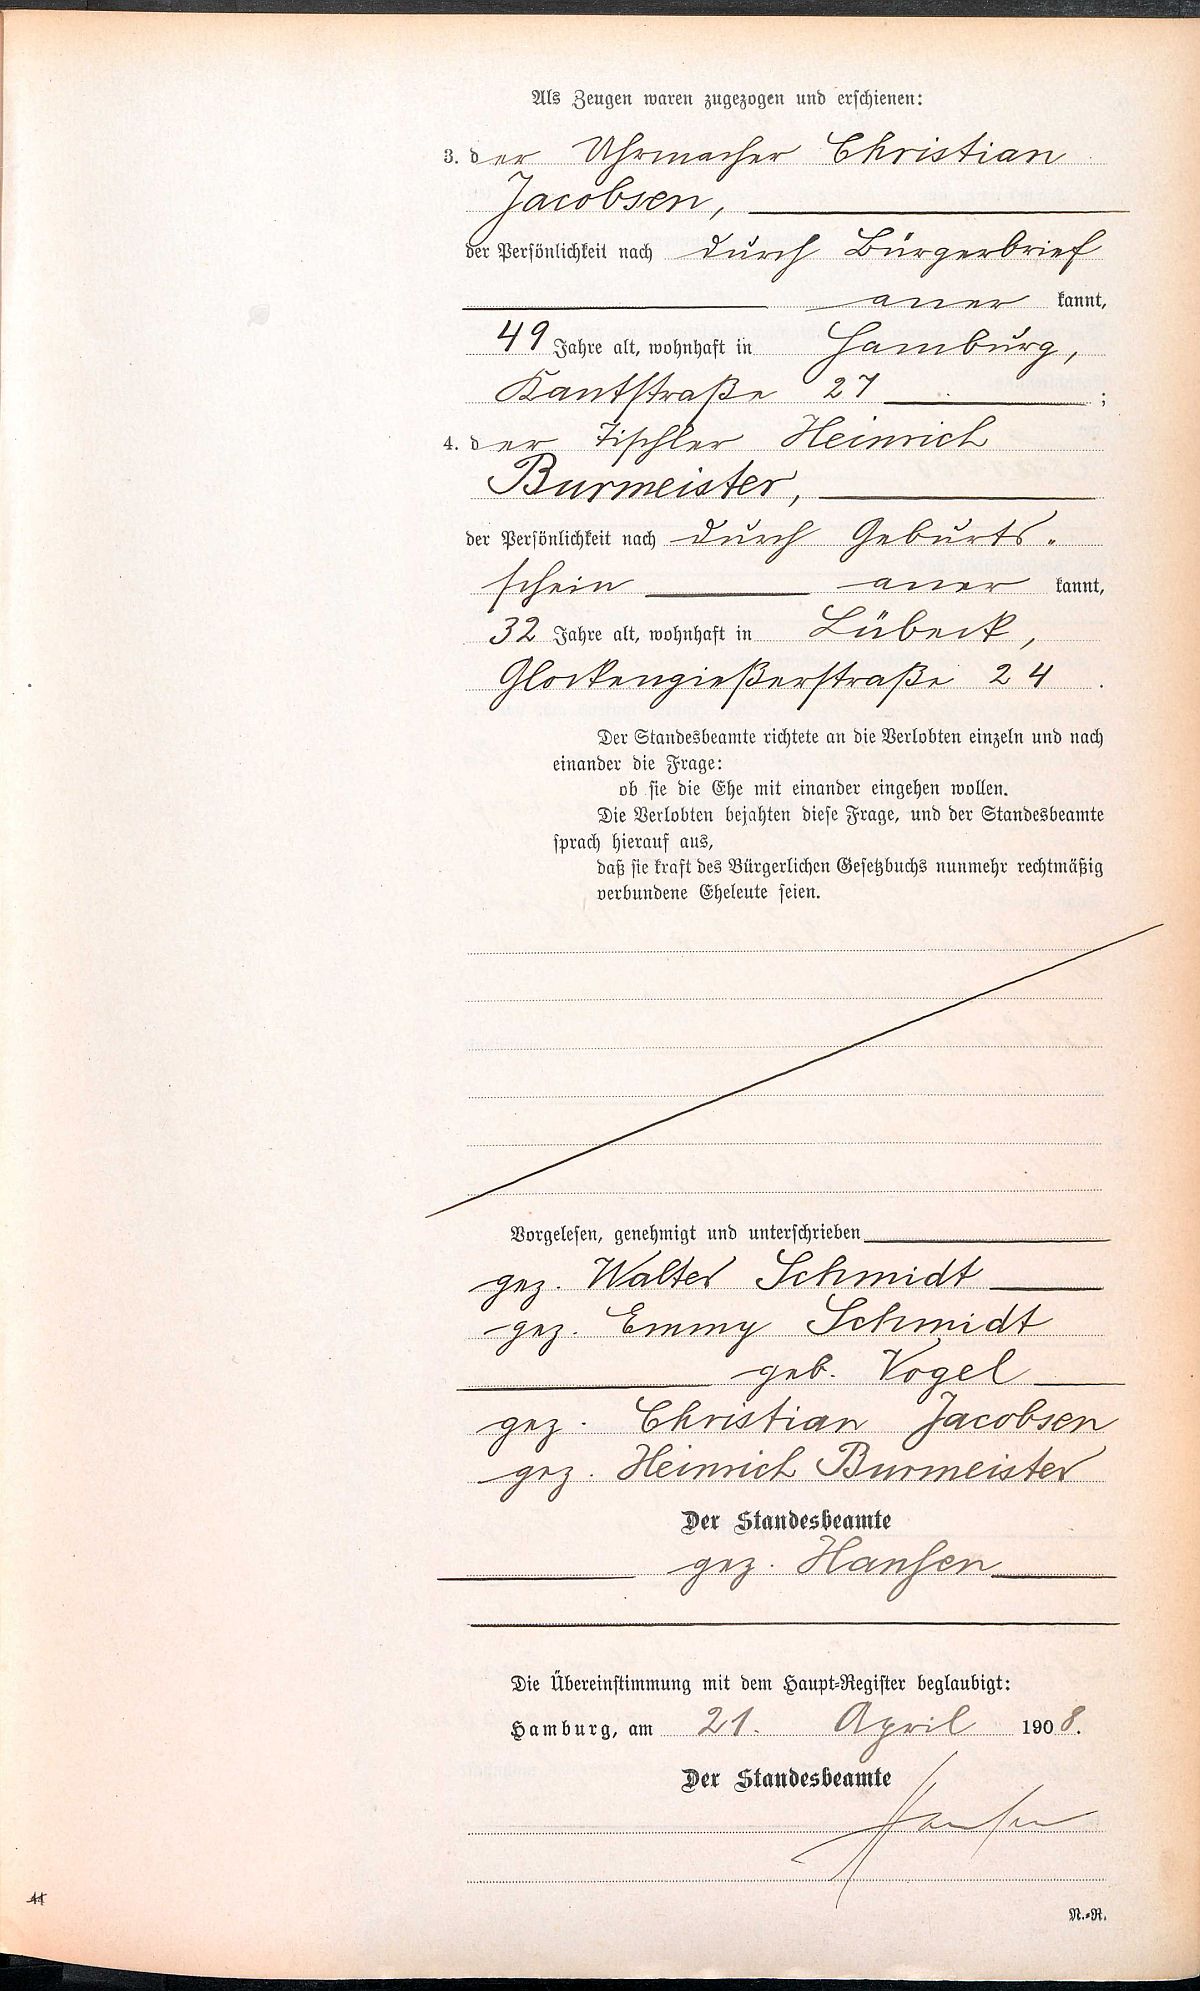 Als Zeugen waren zugezogen und erschienen:
3. der Uhrmacher Christian
Jacobsen,
der Persönlichkeit nach durch Bürgerbrief
anerkannt,
49 Jahre alt, wohnhaft in Hamburg,
Kantstraße 27 ;
4. der Tischler Heinrich
Burmeister,
der Persönlichkeit nach durch Geburts-
schein anerkannt,
32 Jahre alt, wohnhaft in Lübeck,
Glockengießerstraße 24 .
Der Standesbeamte richtete an die Verlobten einzeln und nach
einander die Frage:
ob sie die Ehe mit einander eingehen wollen.
Die Verlobten bejahten diese Frage, und der Standesbeamte
sprach hierauf aus,
daß sie kraft des Bürgerlichen Gesetzbuchs nunmehr rechtmäßig
verbundene Eheleute seien.
Vorgelesen, genehmigt und unterschrieben
gez. Walter Schmidt
gez. Emmy Schmidt
geb. Vogel
gez. Christian Jacobsen
gez. Heinrich Burmeister
Der Standesbeamte
gez. Hansen
Die Übereinstimmung mit dem Haupt-Register beglaubigt:
Hamburg, am 21. April 1908.
Der Standesbeamte
Hansen
N.-R.